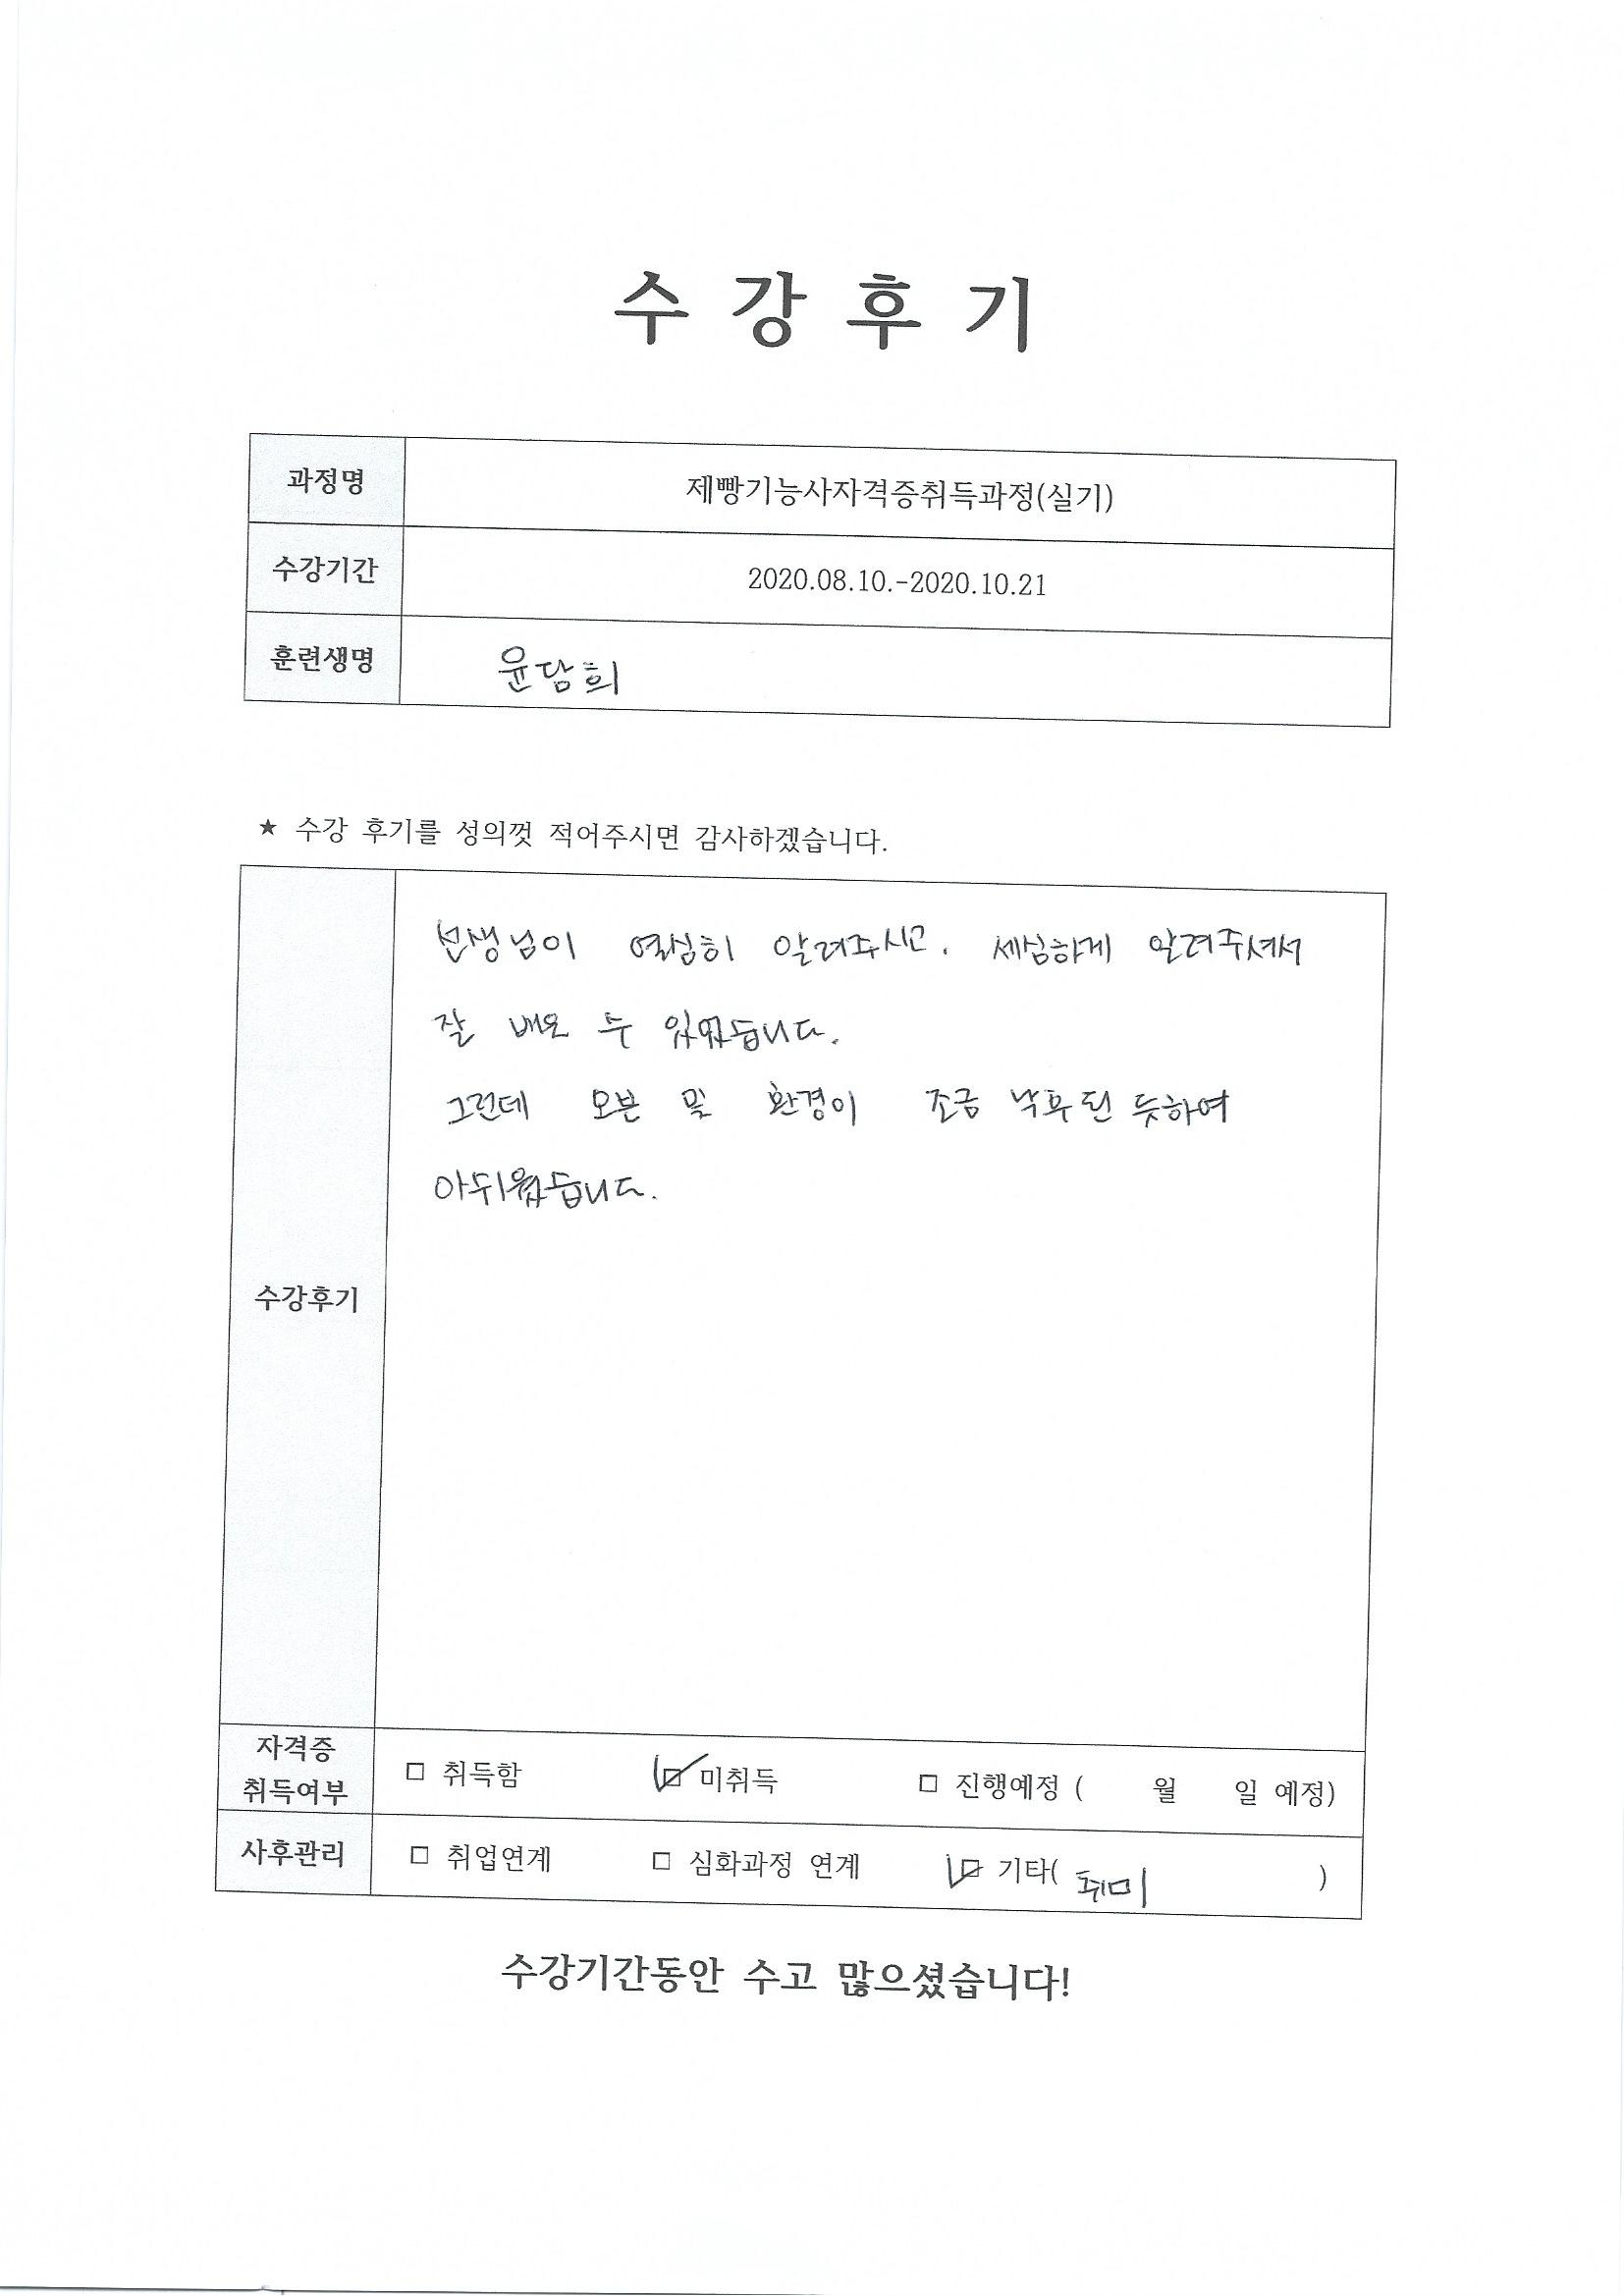 수 강 후 기
과정명 제빵기능사자격증취득과정(실기)
수강기간 2020.08.10.-2020.10.21
훈련생명 윤담희
★ 수강 후기를 성의껏 적어주시면 감사하겠습니다.
선생님이 열심히 알려주시고. 세심하게 알려주셔서
잘 배울 수 있었습니다.
그런데 오븐 및 환경이 조금 낙후된 듯하여
아쉬웠습니다.
수강후기
자격증
취득여부 □ 취득함 ☑ 미취득 □ 진행예정 ( 월 일 예정)
사후관리 □ 취업연계 □ 심화과정 연계 ☑ 기타( 취미 )
수강기간동안 수고 많으셨습니다!